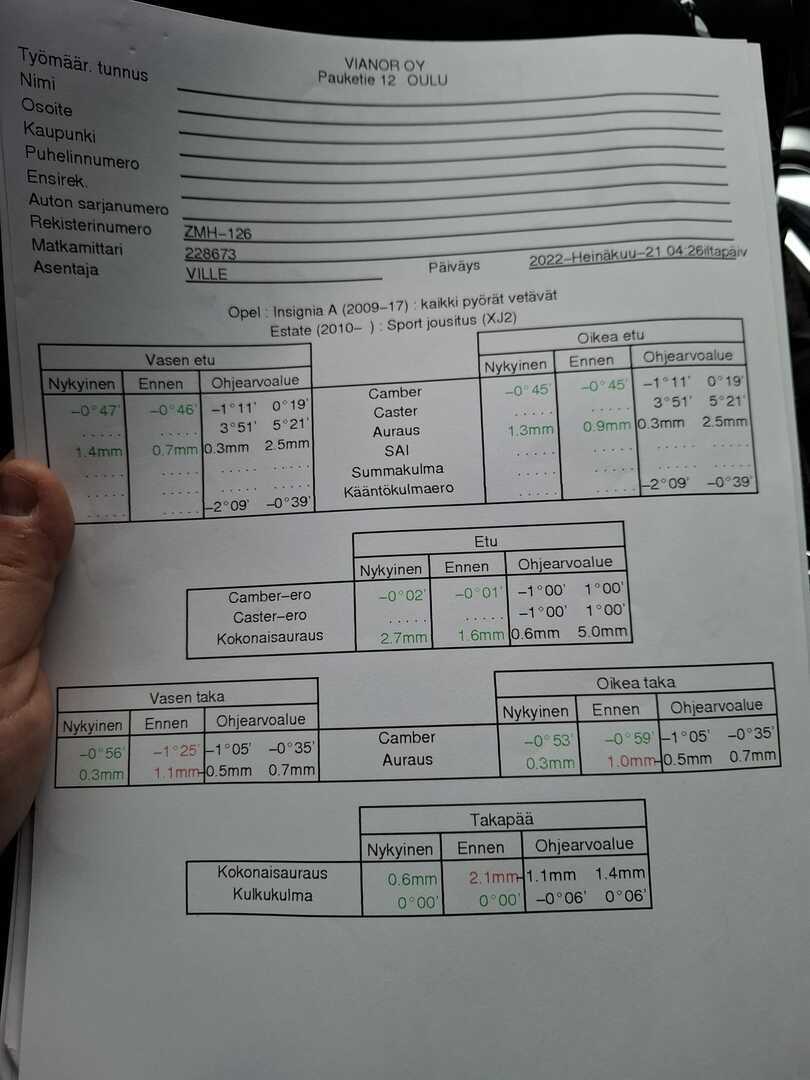 VIANOR OY
Pauketie 12 OULU
Työmäär. tunnus
Nimi
Osoite
Kaupunki
Puhelinnumero
Ensirek.
Auton sarjanumero
Rekisterinumero ZMH-126
Matkamittari 228673
Asentaja VILLE Päiväys 2022-Heinäkuu-21 04:26iltapäiv
Opel : Insignia A (2009-17) : kaikki pyörät vetävät
Estate (2010- ) : Sport jousitus (XJ2)
Vasen etu Oikea etu
Nykyinen Ennen Ohjearvoalue Nykyinen Ennen Ohjearvoalue
-0°47' -0°46' -1°11' 0°19' Camber -0°45' -0°45' -1°11' 0°19'
..... ..... 3°51' 5°21' Caster ..... ..... 3°51' 5°21'
1.4mm 0.7mm 0.3mm 2.5mm Auraus 1.3mm 0.9mm 0.3mm 2.5mm
..... ..... ..... ..... SAI ..... ..... ..... .....
..... ..... ..... ..... Summakulma ..... ..... ..... .....
..... ..... -2°09' -0°39' Kääntökulmaero ..... ..... -2°09' -0°39'
Etu
Nykyinen Ennen Ohjearvoalue
Camber-ero -0°02' -0°01' -1°00' 1°00'
Caster-ero ..... ..... -1°00' 1°00'
Kokonaisauraus 2.7mm 1.6mm 0.6mm 5.0mm
Vasen taka Oikea taka
Nykyinen Ennen Ohjearvoalue Nykyinen Ennen Ohjearvoalue
-0°56' -1°25' -1°05' -0°35' Camber -0°53' -0°59' -1°05' -0°35'
0.3mm 1.1mm -0.5mm 0.7mm Auraus 0.3mm 1.0mm -0.5mm 0.7mm
Takapää
Nykyinen Ennen Ohjearvoalue
Kokonaisauraus 0.6mm 2.1mm -1.1mm 1.4mm
Kulkukulma 0°00' 0°00' -0°06' 0°06'